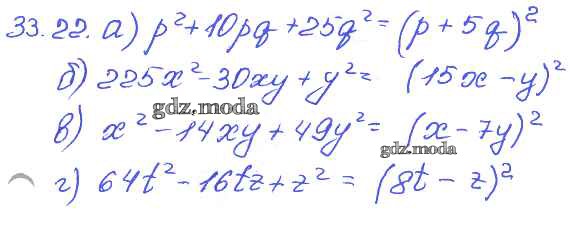 33.22. а) p²+10pq+25q²=(p+5q)²
б) 225x²-30xy+y²= (15x-y)²
gdz.moda
в) x²-14xy+49y²= (x-7y)²
gdz.moda
г) 64t²-16tz+z² = (8t-z)²